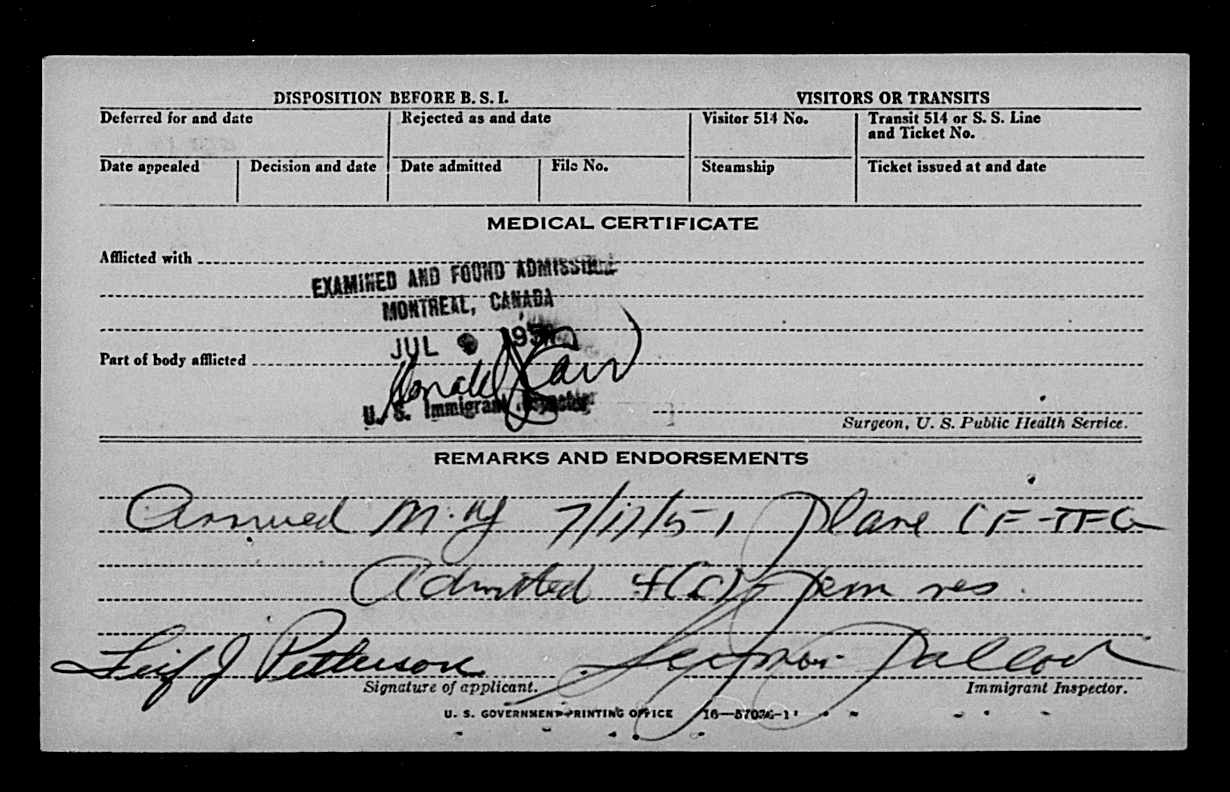 DISPOSITION BEFORE B. S. I.
VISITORS OR TRANSITS
Deferred for and date
Rejected as and date
Visitor 514 No.
Transit 514 or S. S. Line
and Ticket No.
Date appealed
Decision and date
Date admitted
File No.
Steamship
Ticket issued at and date
MEDICAL CERTIFICATE
Afflicted with
EXAMINED AND FOUND ADMISSIBLE
MONTREAL, CANADA
JUL 195
Part of body afflicted
Ronald
U. S. Immigrant Inspector
Surgeon, U. S. Public Health Service.
REMARKS AND ENDORSEMENTS
Arrived N.Y 7/17/51 Plane CF-TFG
Admitted 4(c) perm res.
Leif J Petterson
Seymour
Signature of applicant.
Immigrant Inspector.
U. S. GOVERNMENT PRINTING OFFICE 16—57036-1